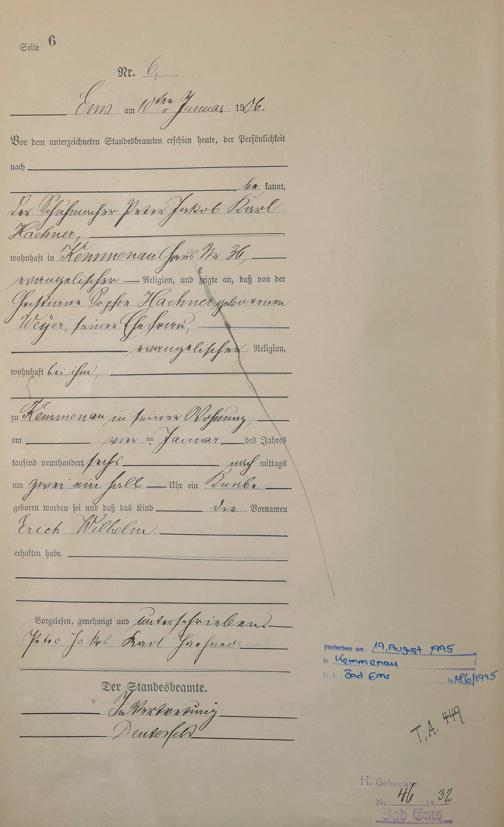 Seite 6
Nr. 6.
Ems am 10ten Januar 1906.
Vor dem unterzeichneten Standesbeamten erschien heute, der Persönlichkeit
nach
be kannt,
der Schuhmacher Peter Jakob Karl
Haxhner,
wohnhaft in Kemmenau Haus Nr 36,
evangelischer Religion, und zeigte an, daß von der
Christiane Sophie Haxhner geborenen
Weyer, seiner Ehefrau,
evangelischer Religion,
wohnhaft bei ihm,
zu Kemmenau in seiner Wohnung,
am vier ten Januar des Jahres
tausend neunhundert sechs nach mittags
um zwei ein halb Uhr ein Knabe
geboren worden sei und daß das Kind die Vornamen
Erich Wilhelm
erhalten habe.
Vorgelesen, genehmigt und unterschrieben
Peter Jakob Karl
Der Standesbeamte.
In Vertretung
gestorben am 19. August 1995
in Kemmenau
Bad Ems Nr. 186/1995
T.A. 449
H. Geheiratet
Nr. 46 1932
Bad Ems